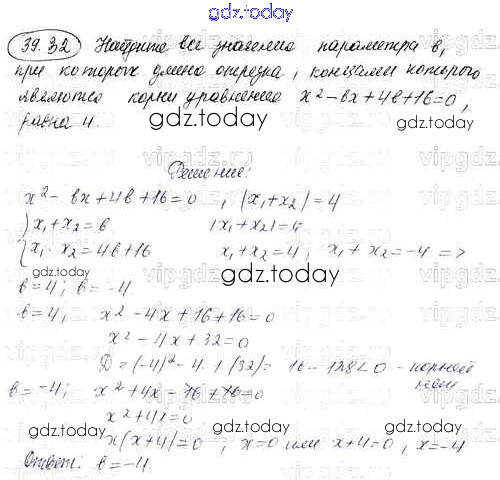 gdz.today
39.32 Найдите все значения параметра в,
при которых длина отрезка, концами которого
являются корни уравнения x²-вx+4в+16=0,
равна 4.
gdz.today
gdz.today
Решение:
x² - вx+4в+16=0 , |x₁+x₂|=4
{x₁+x₂=в |x₁+x₂|=4
{x₁·x₂=4в+16 x₁+x₂=4; x₁+x₂=-4 =>
gdz.today
gdz.today
в=4; в=-4
в=4, x²-4x+16+16=0
x²-4x+32=0
D=(-4)²-4·1·(32)=16-128<0 - корней нет
в=-4; x²+4x-16+16=0
x²+4x=0
x(x+4)=0, x=0 или x+4=0, x=-4
gdz.today
gdz.today
Ответ: в=-4